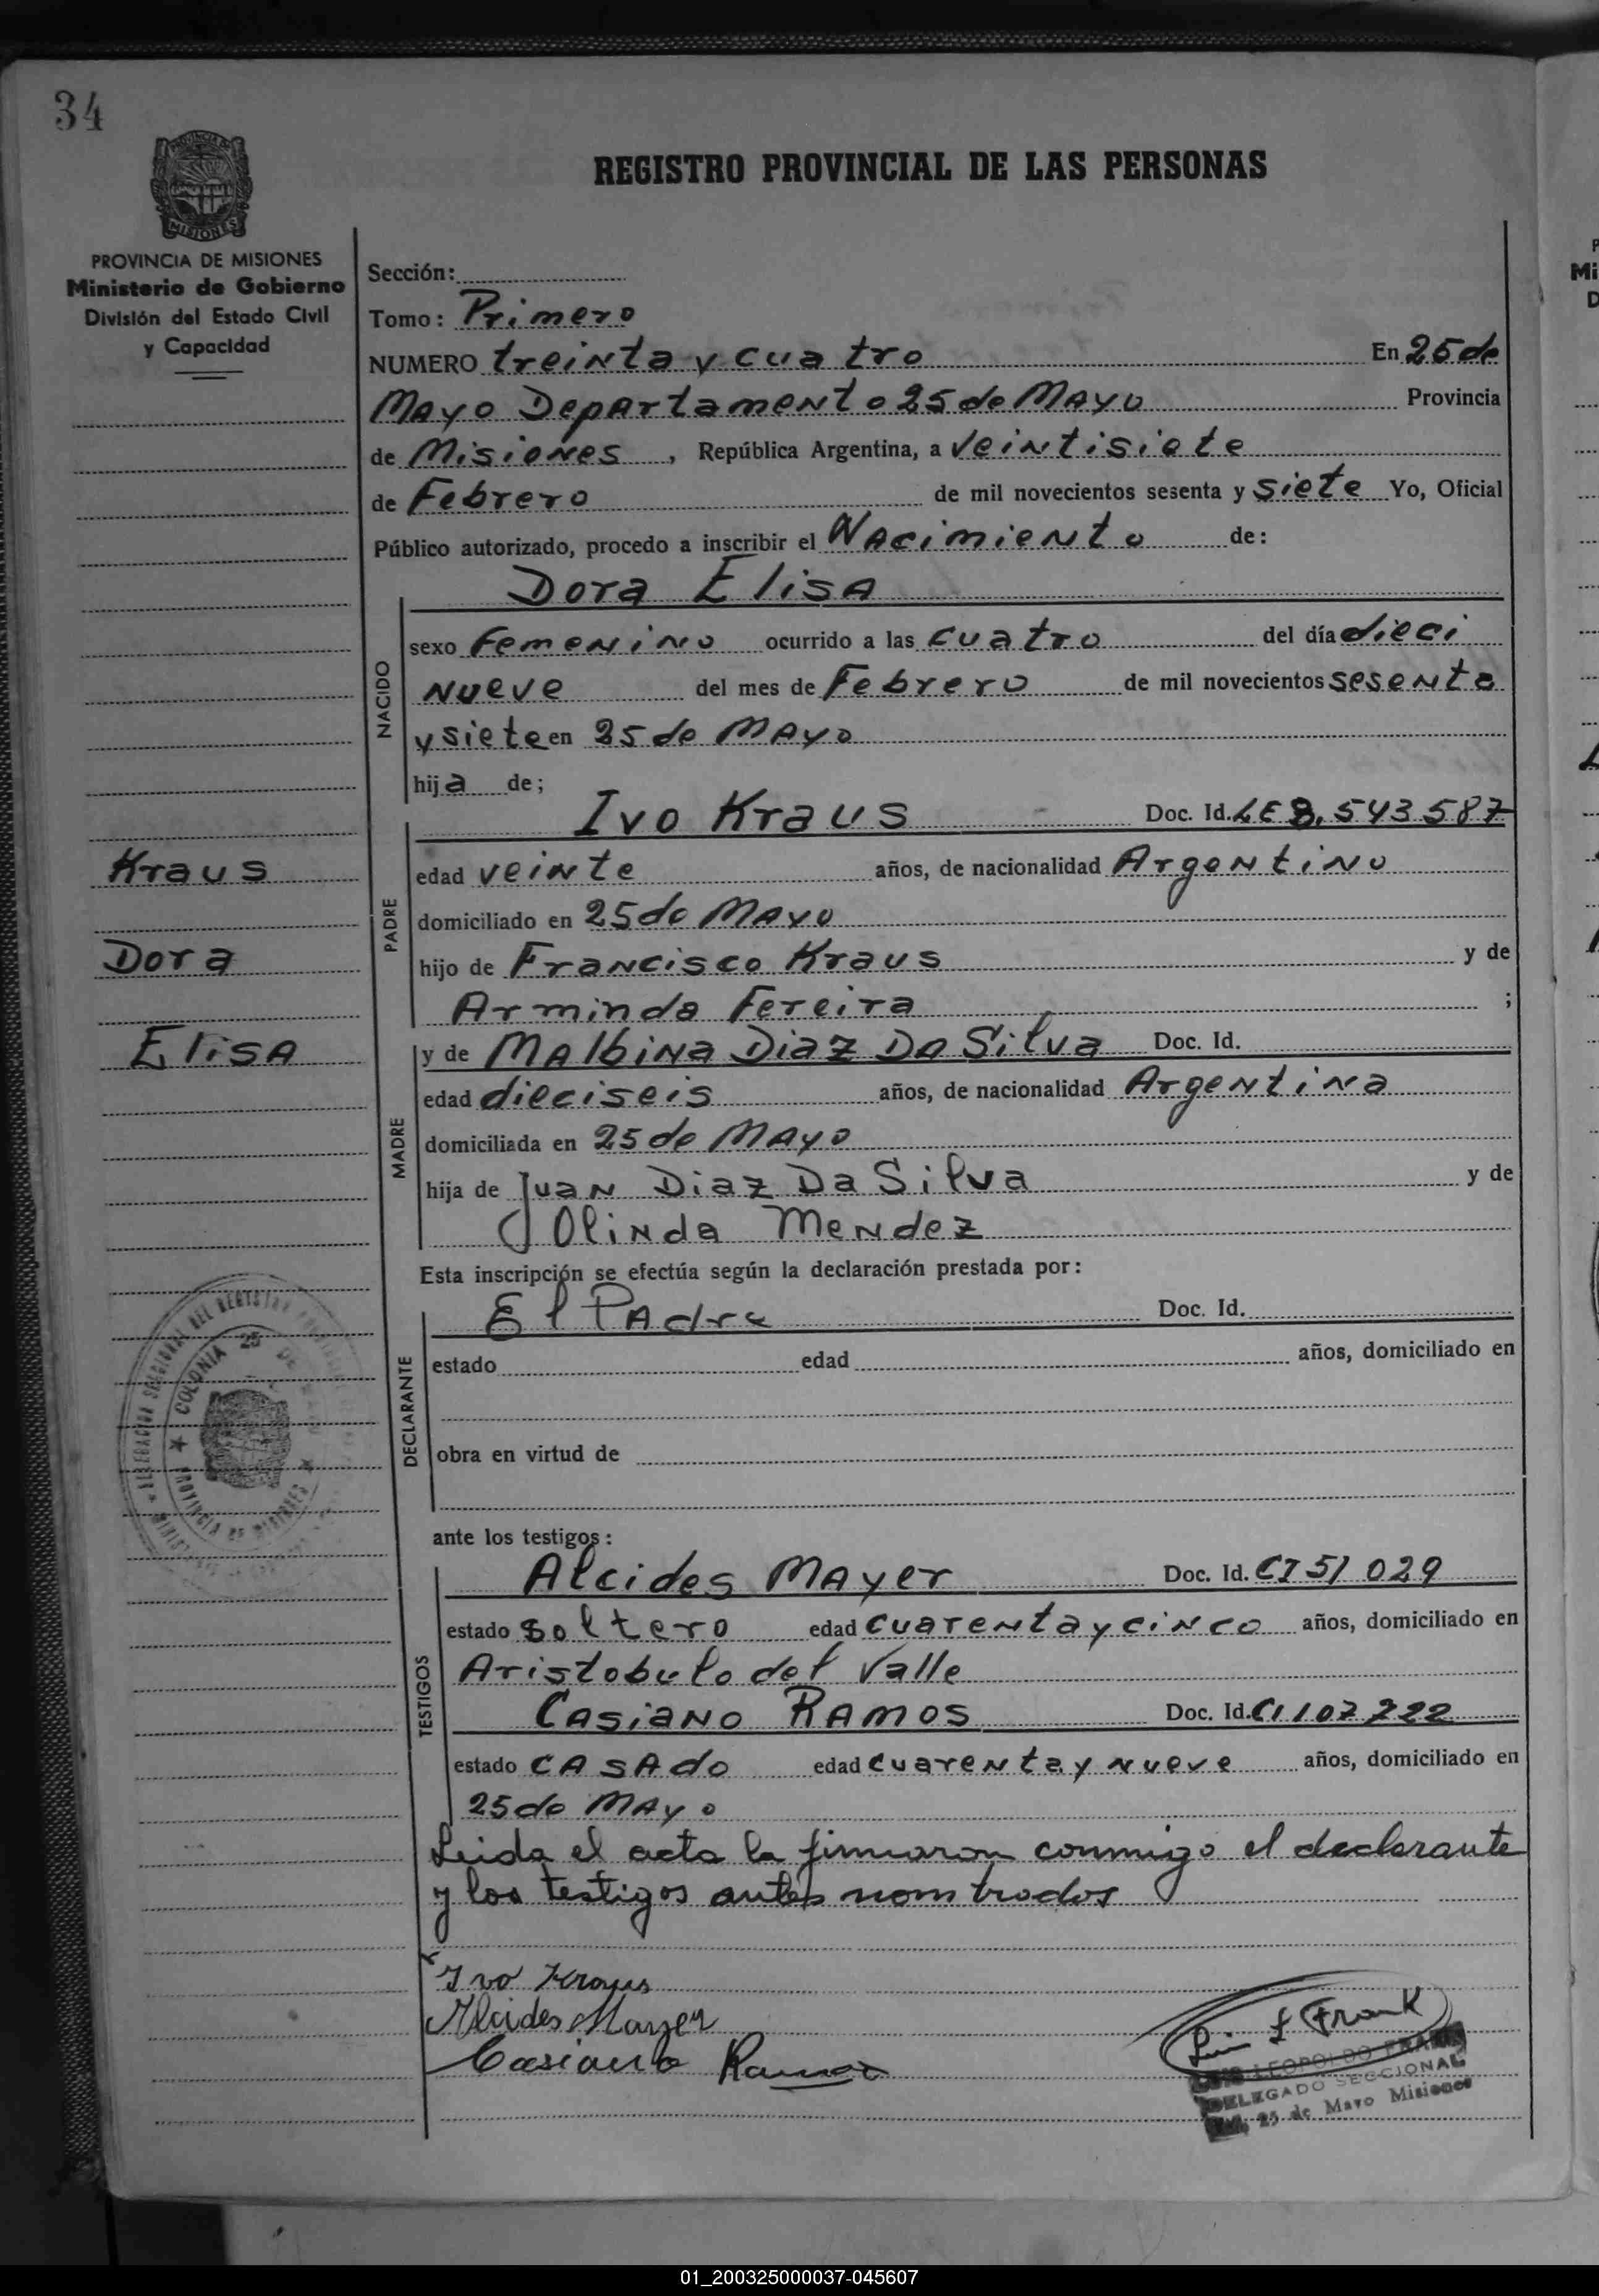 34
REGISTRO PROVINCIAL DE LAS PERSONAS
MISIONES
PROVINCIA DE MISIONES
Ministerio de Gobierno
División del Estado Civil
y Capacidad
Kraus
Dora
Elisa
Sección:
Tomo: Primero
NUMERO treinta y cuatro En 25 de
Mayo Departamento 25 de Mayo Provincia
de Misiones, República Argentina, a veintisiete
de Febrero de mil novecientos sesenta y siete Yo, Oficial
Público autorizado, procedo a inscribir el Nacimiento de:
Dora Elisa
NACIDO
sexo Femenino ocurrido a las cuatro del día dieci
nueve del mes de Febrero de mil novecientos sesenta
y siete en 25 de Mayo
hija de;
PADRE
Ivo Kraus Doc. Id. LE 8,543587
edad veinte años, de nacionalidad Argentino
domiciliado en 25 de Mayo
hijo de Francisco Kraus y de
Arminda Fereira ;
MADRE
y de Malbina Diaz Da Silva Doc. Id.
edad dieciseis años, de nacionalidad Argentina
domiciliada en 25 de Mayo
hija de Juan Diaz Da Silva y de
Olinda Mendez
Esta inscripción se efectúa según la declaración prestada por:
DECLARANTE
El Padre Doc. Id.
estado edad años, domiciliado en
obra en virtud de
ante los testigos:
TESTIGOS
Alcides Mayer Doc. Id. CI 51 029
estado soltero edad cuarenta y cinco años, domiciliado en
Aristobulo del Valle
Casiano Ramos Doc. Id. CI 107 222
estado casado edad cuarenta y nueve años, domiciliado en
25 de Mayo
Leida el acta la firmaron conmigo el declarante
y los testigos antes nombrados
Ivo Kraus
Alcides Mayer
Casiano Ramos
COLONIA 25 DE
PROVINCIA DE MISIONES
L Frank
LEOPOLDO FRANK
DELEGADO SECCIONAL
25 de Mayo Misiones
01_200325000037-045607